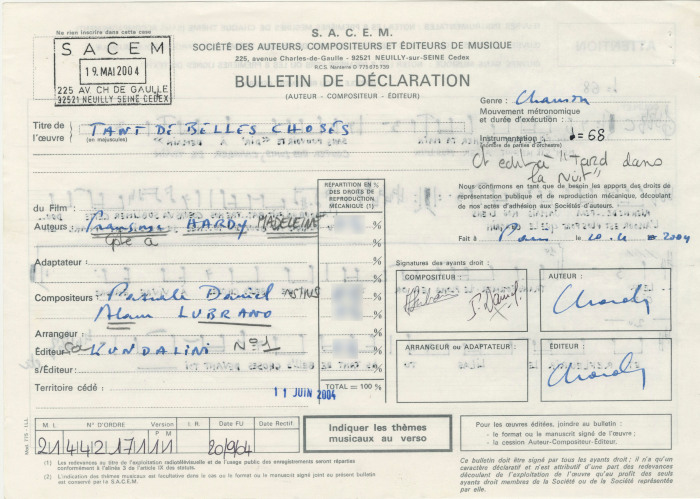 Ne rien inscrire dans cette case
S A C E M
19. MAI 2004
225 AV. CH DE GAULLE
92521 NEUILLY SEINE CEDEX
S. A. C. E. M.
SOCIÉTÉ DES AUTEURS, COMPOSITEURS ET ÉDITEURS DE MUSIQUE
225, avenue Charles-de-Gaulle - 92521 NEUILLY-sur-SEINE Cedex
R.C.S. Nanterre D 775 675 739
BULLETIN DE DÉCLARATION
(AUTEUR - COMPOSITEUR - ÉDITEUR)
Genre : Chanson
Mouvement métronomique
et durée d'exécution :
Instrumentation : ♩= 68
(nombre de parties d'orchestre)
Titre de l'œuvre (en majuscules) : TANT DE BELLES CHOSES
Ct edit à "Tard dans
la nuit"
Nous confirmons en tant que de besoin les apports des droits de
représentation publique et de reproduction mécanique, découlant
de nos actes d'adhésion aux Sociétés d'auteurs.
Fait à Paris le 20. 4 2004
RÉPARTITION EN %
DES DROITS DE
REPRODUCTION
MÉCANIQUE (1)
du Film :
Auteurs : Françoise HARDY MADELEINE %
%
Adaptateur : %
%
Compositeurs : Pascale Daniel %
Alain LUBRANO %
Arrangeur : %
Éditeur : KUNDALINI N°1 %
s/Éditeur : %
Territoire cédé : 11 JUIN 2004
TOTAL = 100 %
Signatures des ayants droit :
COMPOSITEUR : AUTEUR :
P. Daniel
ARRANGEUR ou ADAPTATEUR : ÉDITEUR :
M. I. N° D'ORDRE Version I. R. Date FU Date Rectif
P M
20/9/04
Indiquer les thèmes
musicaux au verso
Pour les œuvres éditées, joindre au bulletin :
- le format ou le manuscrit signé de l'œuvre ;
- la cession Auteur-Compositeur-Éditeur.
(1) Les redevances au titre de l'exploitation radiotélévisuelle et de l'usage public des enregistrements seront réparties
conformément à l'alinéa 3 de l'article IX des statuts.
(2) L'indication des thèmes musicaux est facultative dans le cas où le format ou le manuscrit signé joint au présent bulletin
est conservé par la S.A.C.E.M.
Ce bulletin doit être signé par tous les ayants droit ; il n'a qu'un
caractère déclaratif et n'est attributif d'une part des redevances
découlant de l'exploitation de l'œuvre qu'au profit des seuls
ayants droit membres de la Société ou de la Société représentée
par elle.